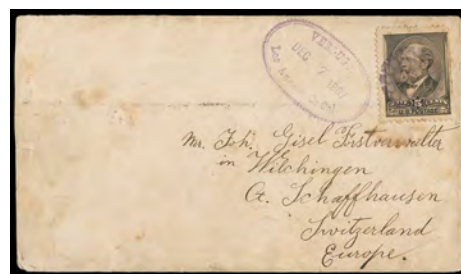 VERDUGO
DEC 7 1887
Los Angeles Co. Cal.
U.S. POSTAGE
Mr. Joh. Gisel Forstverwalter
in Wilchingen
Ct. Schaffhausen
Switzerland
Europe.